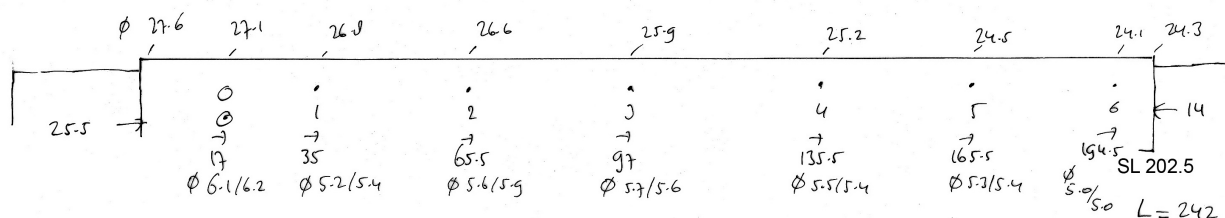 φ 27.6 27.1 26.8 26.6 25.9 25.2 24.5 24.1 24.3
0 1 2 3 4 5 6
25.5 → ← 14
→ → → → → → →
17 35 65.5 97 135.5 165.5 194.5
SL 202.5
φ 6.1/6.2 φ 5.2/5.4 φ 5.6/5.9 φ 5.7/5.6 φ 5.5/5.4 φ 5.3/5.4 φ 5.0/5.0
L = 242